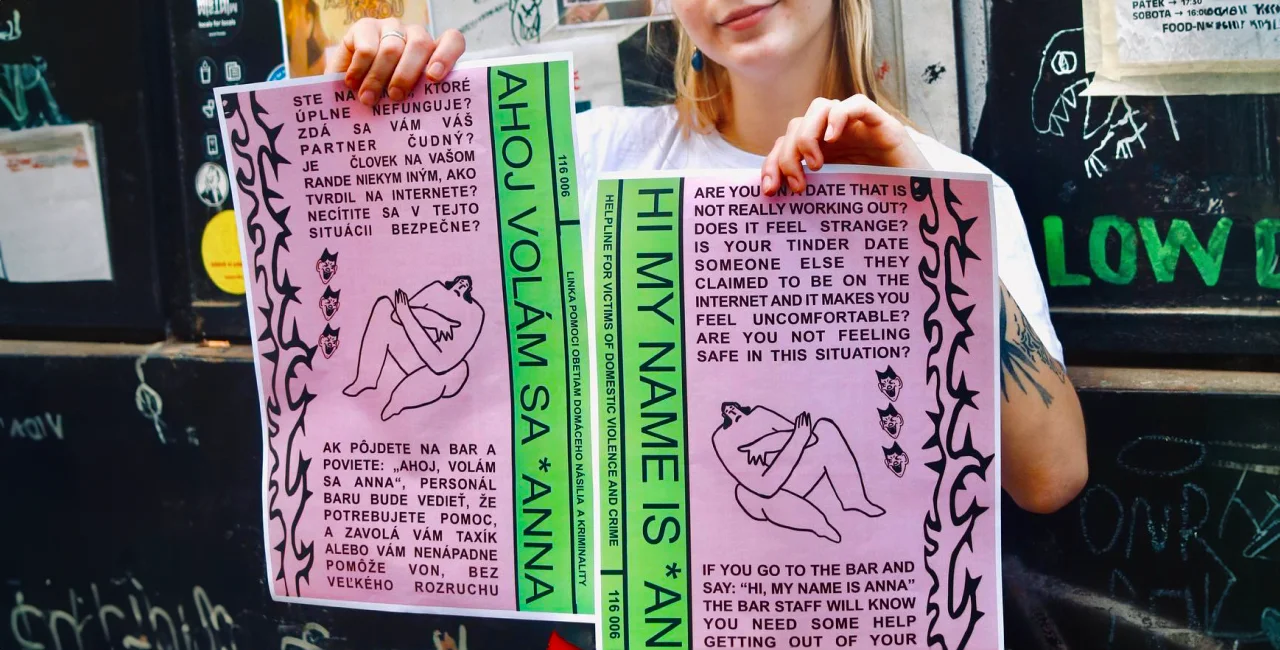 STE NA KTORÉ
ÚPLNE NEFUNGUJE?
ZDÁ SA VÁM VÁŠ
PARTNER ČUDNÝ?
JE ČLOVEK NA VAŠOM
RANDE NIEKYM INÝM, AKO
TVRDIL NA INTERNETE?
NECÍTITE SA V TEJTO
SITUÁCII BEZPEČNE?
AK PÔJDETE NA BAR A
POVIETE: „AHOJ, VOLÁM
SA ANNA“, PERSONÁL
BARU BUDE VEDIEŤ, ŽE
POTREBUJETE POMOC,
A ZAVOLÁ VÁM TAXÍK
ALEBO VÁM NENÁPADNE
POMÔŽE VON, BEZ
VEĽKÉHO ROZRUCHU
AHOJ VOLÁM SA *ANNA
116 006
LINKA POMOCI OBETIAM DOMÁCEHO NÁSILIA A KRIMINALITY
HELPLINE FOR VICTIMS OF DOMESTIC VIOLENCE AND CRIME
116 006
HI MY NAME IS *AN
ARE YOU DATE THAT IS
NOT REALLY WORKING OUT?
DOES IT FEEL STRANGE?
IS YOUR TINDER DATE
SOMEONE ELSE THEY
CLAIMED TO BE ON THE
INTERNET AND IT MAKES YOU
FEEL UNCOMFORTABLE?
ARE YOU NOT FEELING
SAFE IN THIS SITUATION?
IF YOU GO TO THE BAR AND
SAY: “HI, MY NAME IS ANNA”
THE BAR STAFF WILL KNOW
YOU NEED SOME HELP
GETTING OUT OF YOUR
PÁTEK → 17:30
SOBOTA →
LOW